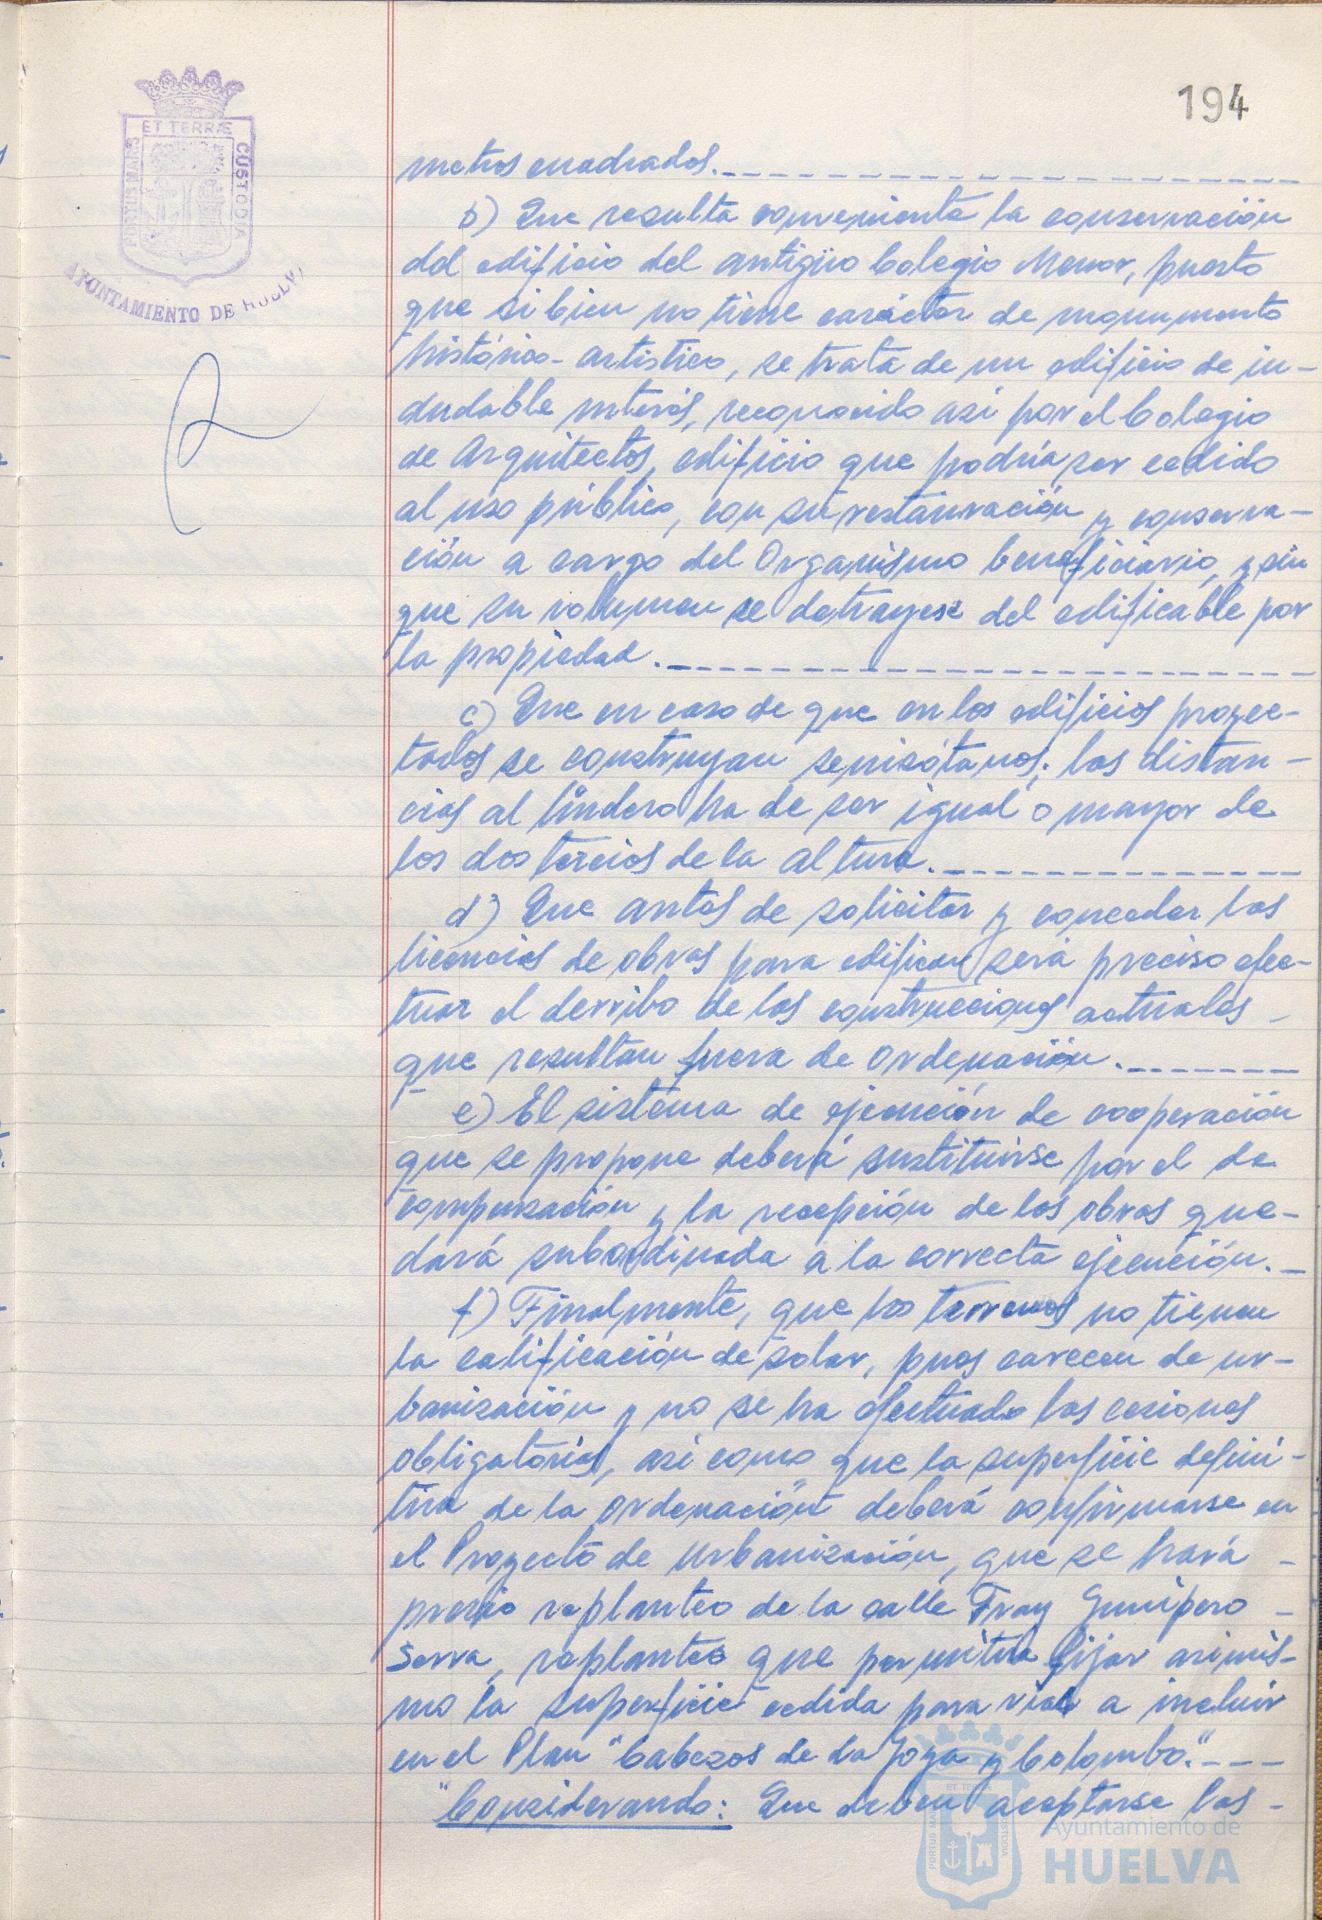 194
ET TERRÆ
PORTUS MARIS
CUSTODIA
AYUNTAMIENTO DE HUELVA
metros cuadrados.
b) Que resulta conveniente la conservación
del edificio del antigüo Colegio Menor, puesto
que si bien no tiene carácter de monumento
histórico-artístico, se trata de un edificio de in-
dudable interés, reconocido así por el Colegio
de Arquitectos, edificio que podría ser cedido
al uso público, con su restauración y conserva-
ción a cargo del Organismo beneficiario, y sin
que su volumen se detrayese del edificable por
la propiedad.
c) Que en caso de que en los edificios proyec-
tados se construyan semisótanos, las distan-
cias al lindero ha de ser igual o mayor de
los dos tercios de la altura.
d) Que antes de solicitar y conceder las
licencias de obras para edificar será preciso efec-
tuar el derribo de las construcciones actuales
que resultan fuera de ordenación.
e) El sistema de ejecución de cooperación
que se propone deberá sustituirse por el de
compensación y la recepción de los obras que-
dará subordinada a la correcta ejecución.
f) Finalmente, que los terrenos no tienen
la calificación de solar, pues carecen de ur-
banización y no se ha efectuado las cesiones
obligatorias, así como que la superficie defini-
tiva de la ordenación deberá confirmarse en
el Proyecto de Urbanización, que se hará
previo replanteo de la calle Fray Junípero
Serra, replanteo que permitirá fijar asimis-
mo la superficie cedida para vial a incluir
en el Plan "Cabezos de La Joya y Colombo".
"Considerando: Que deben aceptarse las
ET TERRÆ
PORTUS MARIS
CUSTODIA
Ayuntamiento de
HUELVA